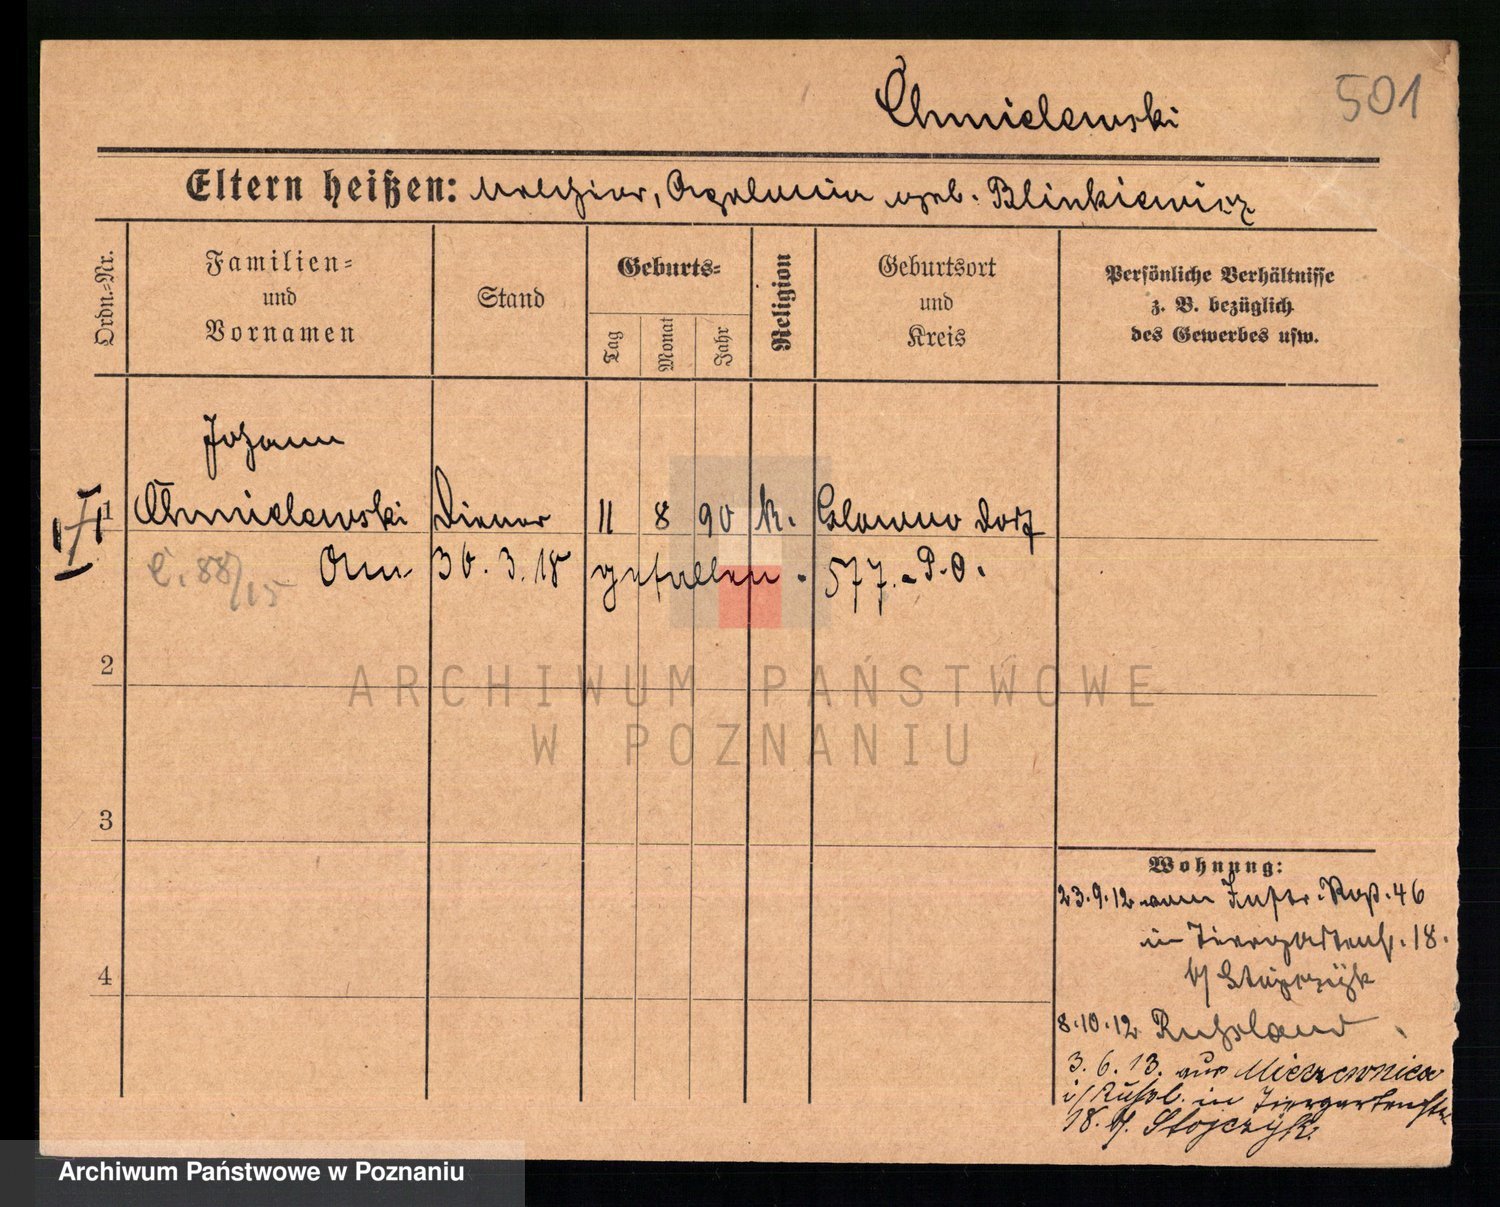 Chmielewski
501
Eltern heißen: Melchior, Apolonia geb. Blinkiewicz
Ordn.-Nr.
Familien-
und
Vornamen
Stand
Geburts-
Tag
Monat
Jahr
Religion
Geburtsort
und
Kreis
Persönliche Verhältnisse
z. B. bezüglich
des Gewerbes usw.
Johann
1 Chmielewski Diener 11 8 90 k. Glowno Dorf
Am 30. 3. 18 gefallen. 577. P.O.
88/15
2
ARCHIWUM PAŃSTWOWE
W POZNANIU
3
4
Wohnung:
23.9.12 vom Inftr. Rgt. 46
in Tiergartenst. 18.
b/
8.10.12 Russland
3. 6. 13. aus
i/Russl. in Tiergartenstr
18. b/. Stojczyk.
Archiwum Państwowe w Poznaniu